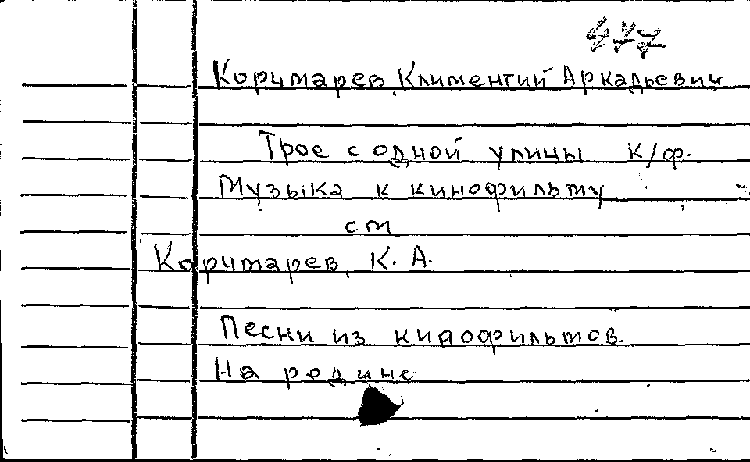 477
Корчмарев, Климентий Аркадьевич
Трое с одной улицы к/ф.
Музыка к кинофильму
см
Корчмарев, К. А.
Песни из кинофильмов.
На родине